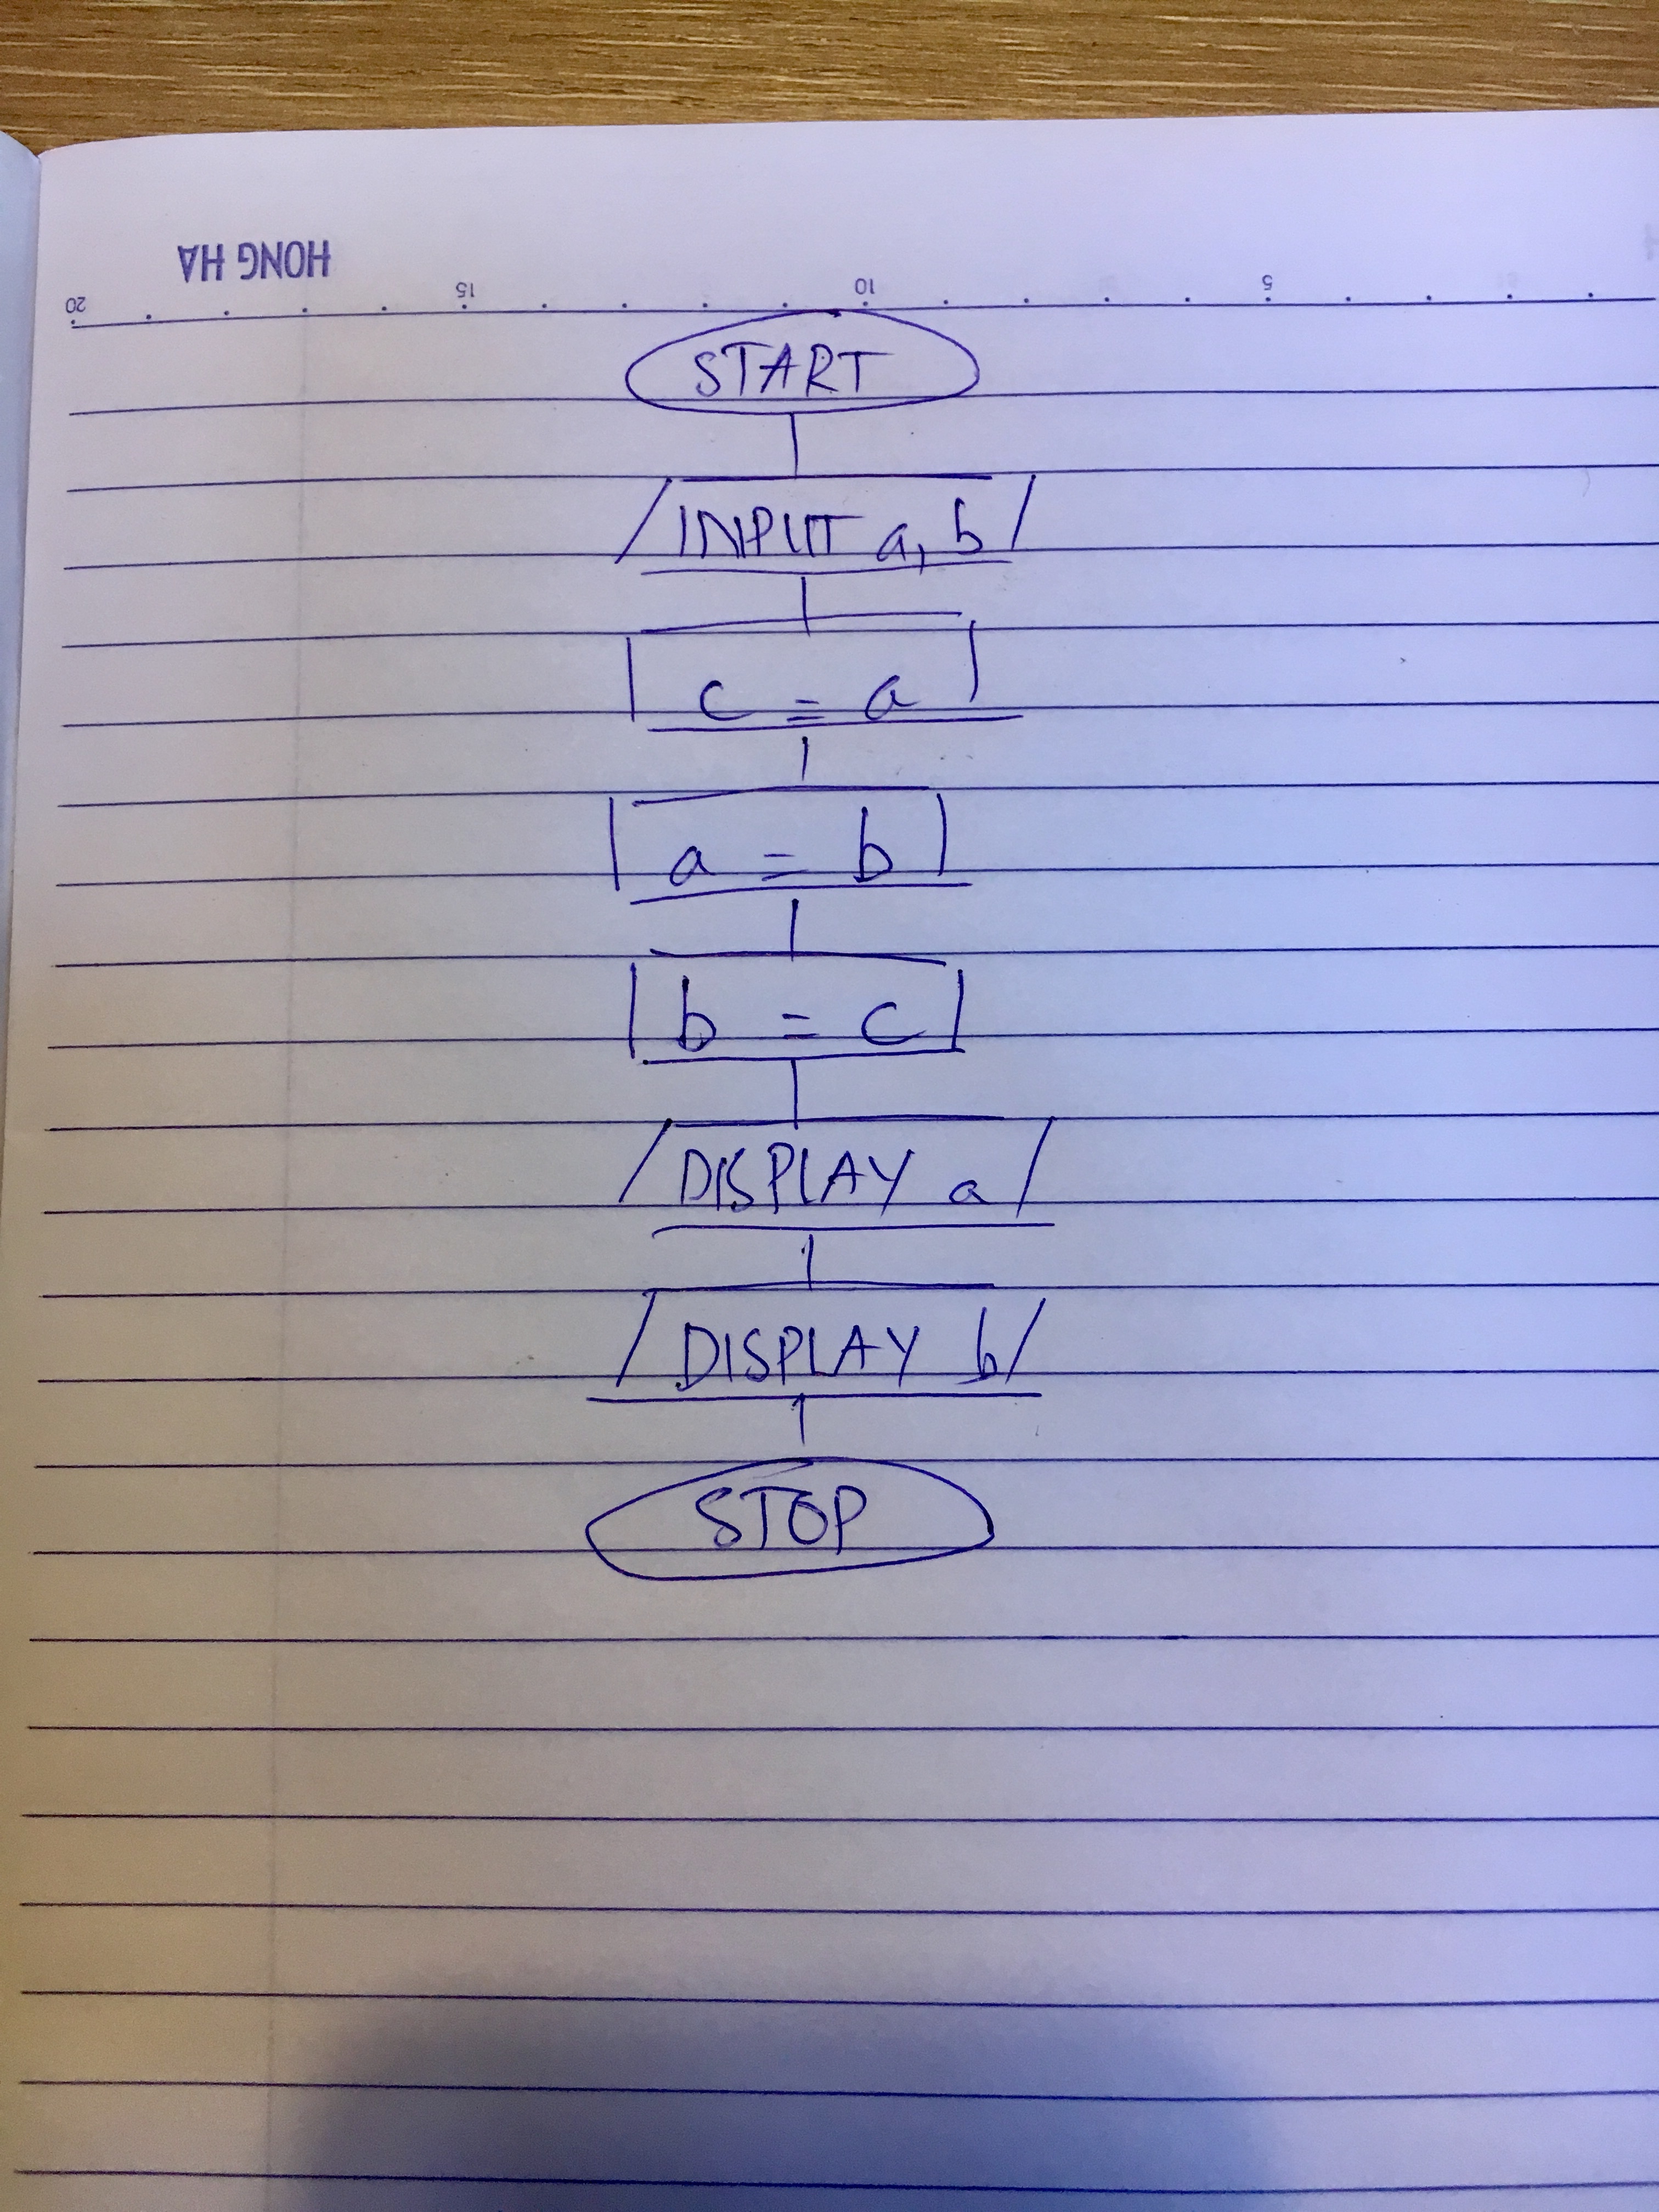 HONG HA
20 15 10 5
START
INPUT a, b
c = a
a = b
b = c
DISPLAY a
DISPLAY b
STOP